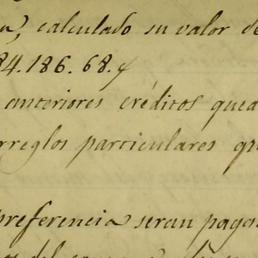 , calculado su valor de
84.186.68.
anteriores créditos que
rreglos particulares q
preferencia seran pago